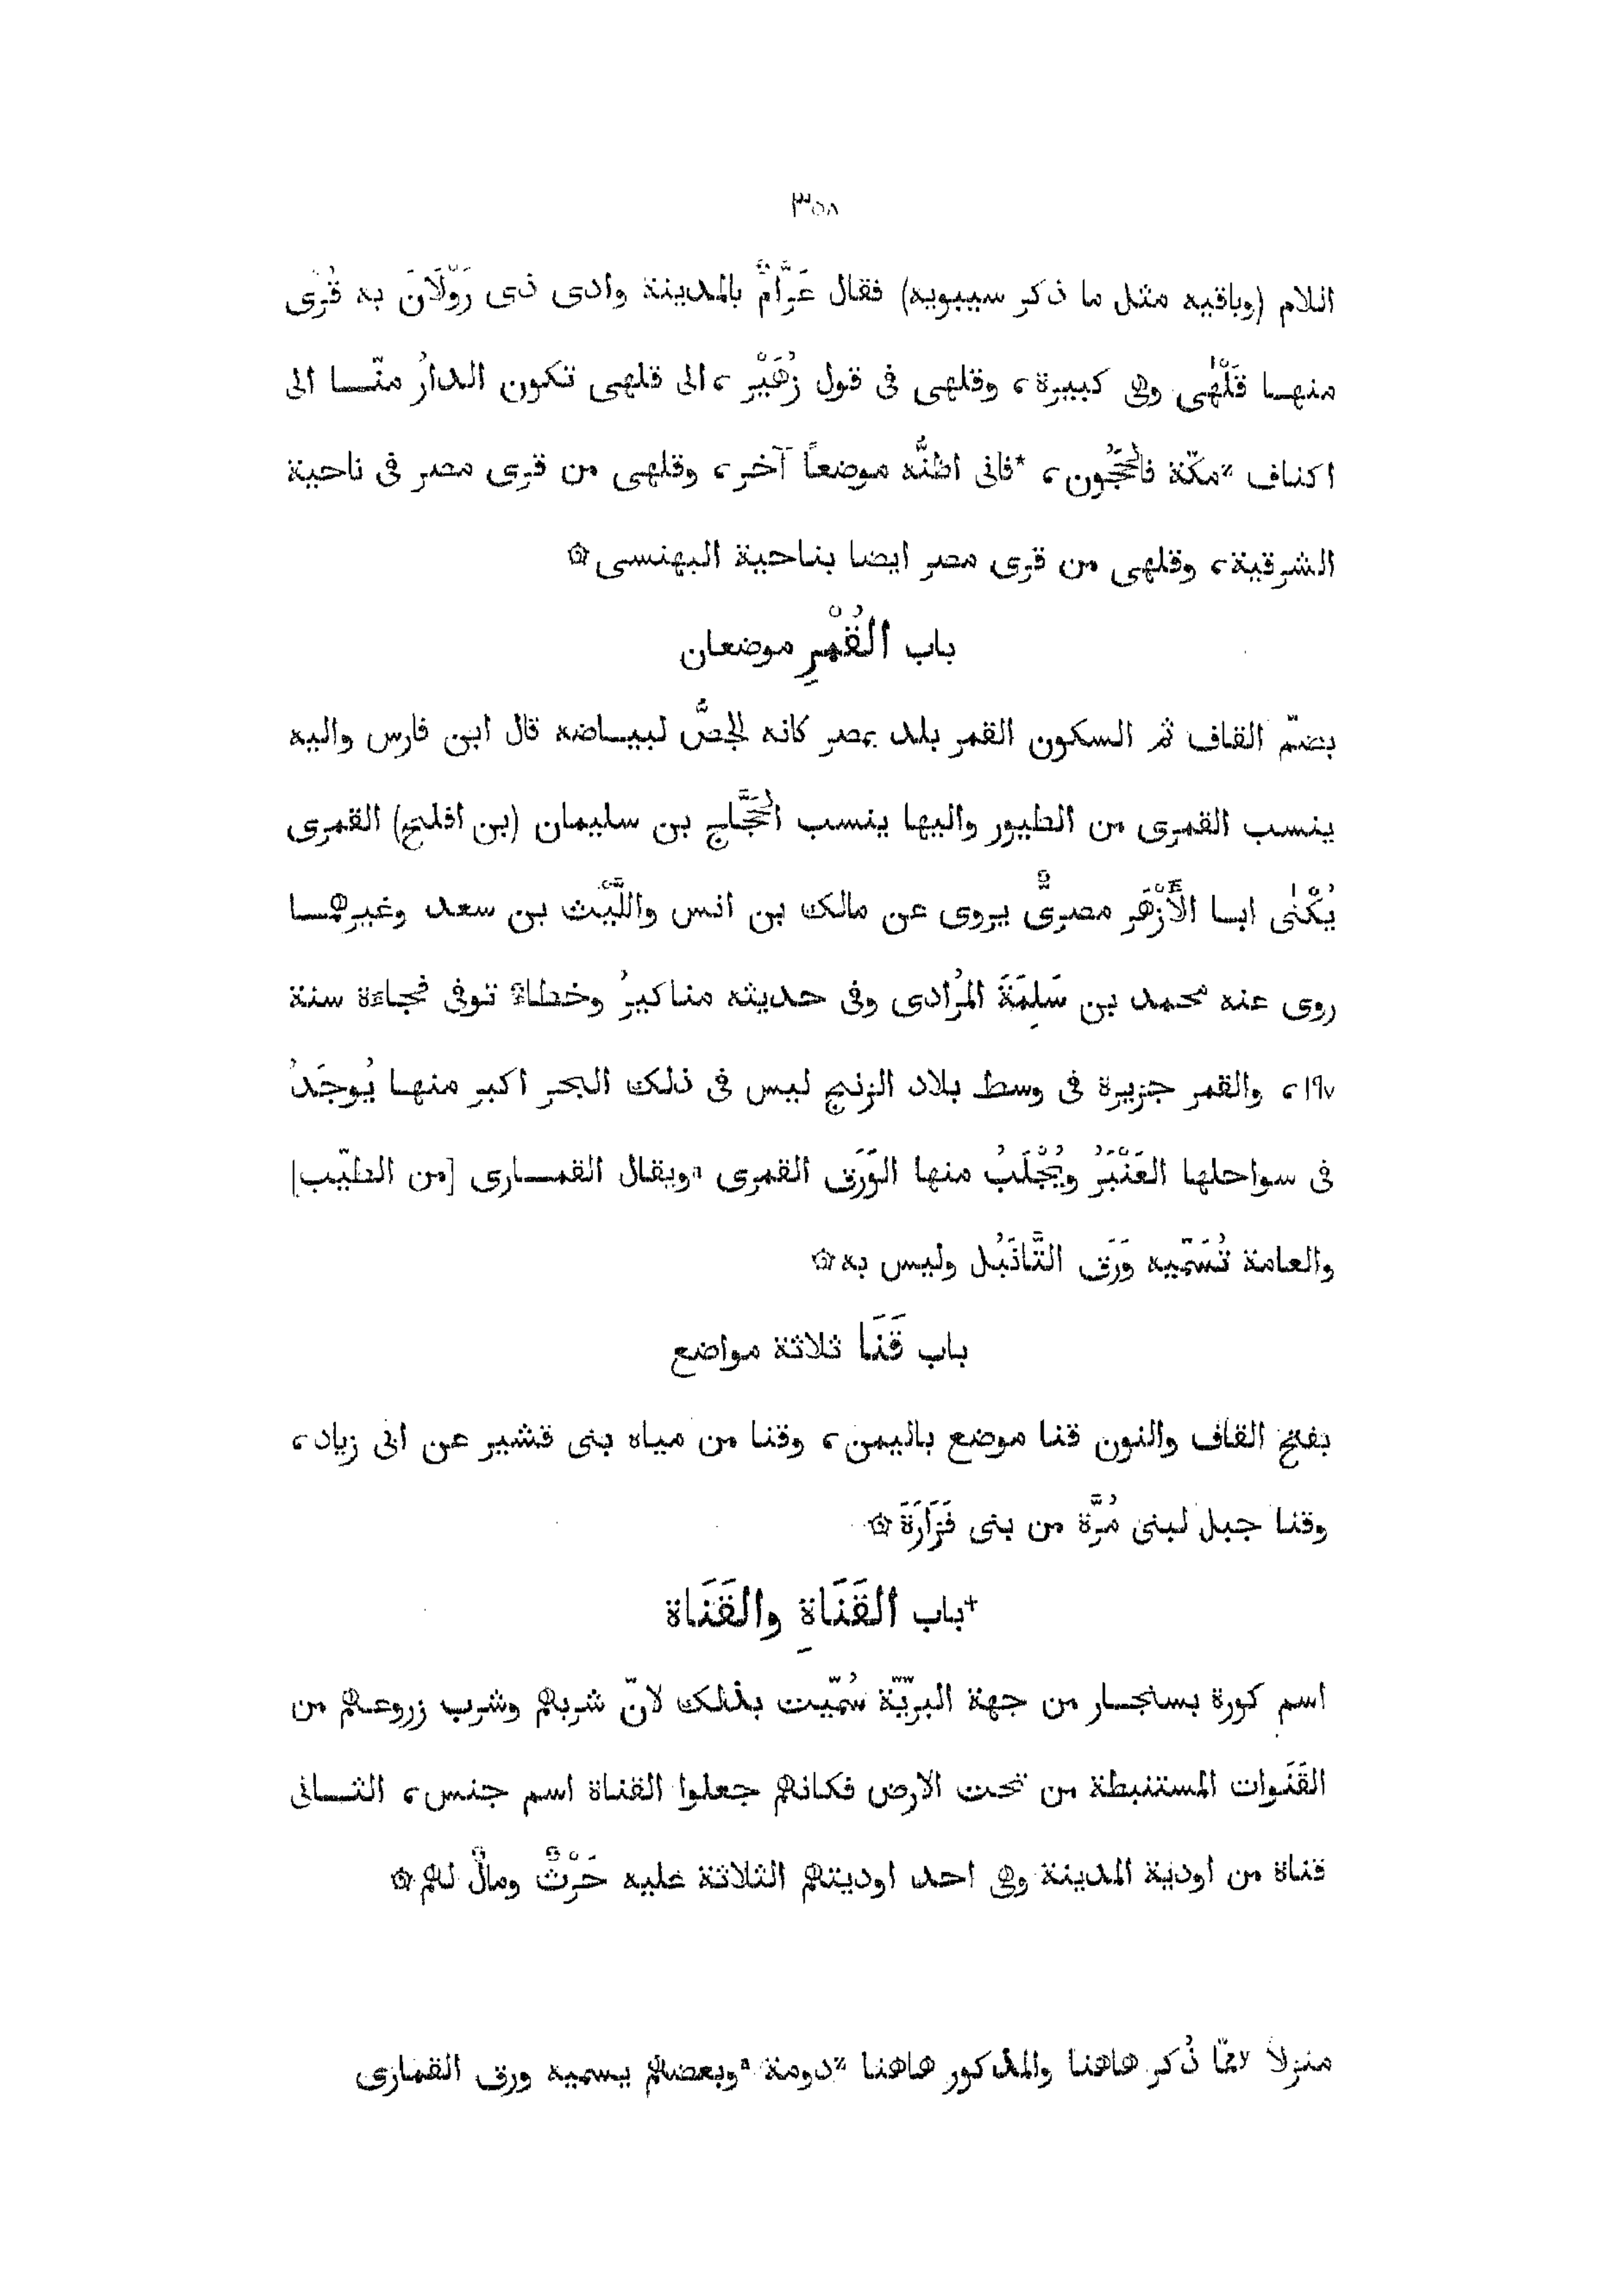 ٣٥٨
اللام (وباقيه مثل ما ذكر سيبويه) فقال عَرَّامٌ بالمدينة وادى ذى رَوْلَانَ به قُرًى
منهـا قَلَهْى وهى كبيرة، وقلهى فى قول زُهَيْر، الى قلهى تكون الدارُ منّـا الى
اكناف مكّة فالحَجُون، *فانى اظنُّه موضعاً آخر، وقلهى من قرى مصر فى ناحية
الشرقية، وقلهى من قرى مصر ايضا بناحية البهنسى ۞
باب القُمْرِ موضعان
بضمّ القاف ثم السكون القمر بلد بمصر كانه الجصُّ لبيـاضه قال ابن فارس واليه
ينسب القمرى من الطيور واليها ينسب الحَجَّاج بن سليمان (بن افلح) القمرى
يُكْنَى ابـا الأَزْهَر مصرىٌّ يروى عن مالك بن انس واللَّيْث بن سعد وغيرهمـا
روى عنه محمد بن سَلِمَةَ المُرادى وفى حديثه مناكيرُ وخطاءٌ توفى فجاءة سنة
١٩٧، والقمر جزيرة فى وسط بلاد الزنج ليس فى ذلك البحر اكبر منهـا يُوجَدُ
فى سواحلها العَنْبَرُ ويُجْلَبُ منها الوَرَق القمرى ويقال القمـارى [من الطيّب]
والعامة تُسَمّيه وَرَق التَّانْبُل وليس به ۞
باب قَنَا ثلاثة مواضع
بفتح القاف والنون قنا موضع باليمن، وقنا من مياه بنى قشير عن ابى زياد،
وقنا جبل لبنى مُرَّة من بنى فَزَارَةَ ۞
+باب القَنَاةِ والقَنَاة
اسم كورة بسنجـار من جهة البرّيّة سُمّيت بذلك لانّ شربهم وشرب زروعهم من
القَنَوات المستنبطة من تحت الارض فكانهم جعلوا القناة اسم جنس، الثـانى
قناة من اودية المدينة وهى احد اوديتهم الثلاثة عليه حَرْثٌ ومالٌ لهم ۞
منزلا لامّا ذُكر هاهنا والمذكور هاهنا دومة وبعضهم يسميه ورق القمارى